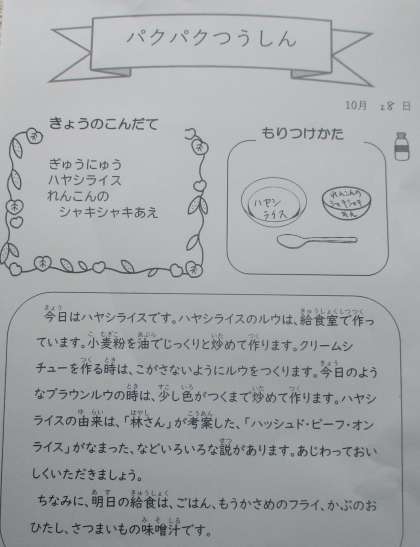 パクパクつうしん
10月 28日
きょうのこんだて
ぎゅうにゅう
ハヤシライス
れんこんの
シャキシャキあえ
もりつけかた
ハヤシ
ライス
れんこんの
シャキシャキ
あえ
今日はハヤシライスです。ハヤシライスのルウは、給食室で作っ
ています。小麦粉を油でじっくりと炒めて作ります。クリームシ
チューを作る時は、こがさないようにルウをつくります。今日のよう
なブラウンルウの時は、少し色がつくまで炒めて作ります。ハヤシ
ライスの由来は、「林さん」が考案した、「ハッシュド・ビーフ・オン
ライス」がなまった、などいろいろな説があります。あじわっておい
しくいただきましょう。
ちなみに、明日の給食は、ごはん、もうかさめのフライ、かぶのお
ひたし、さつまいもの味噌汁です。